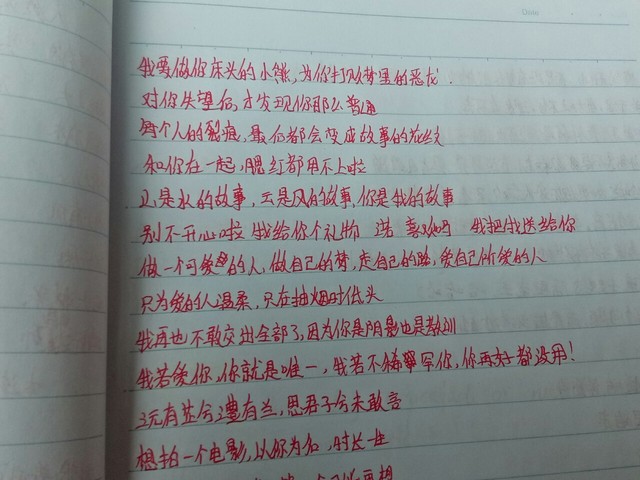 我要做你床头的小熊,为你打败梦里的恶龙.
对你失望后,才发现你那么普通
每个人的裂痕,最后都会变成故事的花纹
和你在一起,腮红都用不上啦
山是水的故事,云是风的故事,你是我的故事
别不开心啦 我给你个礼物 诺 喜欢吗 我把我送给你
做一个可爱的人,做自己的梦,走自己的路,爱自己所爱的人
只为爱的人温柔,只在抽烟时低头
我再也不敢交出全部了,因为你是阴影也是教训
我若爱你,你就是唯一,我若不稀罕你,你再好都没用!
沅有芷兮澧有兰,思君子兮未敢言
想拍一个电影,以你为名,时长一生